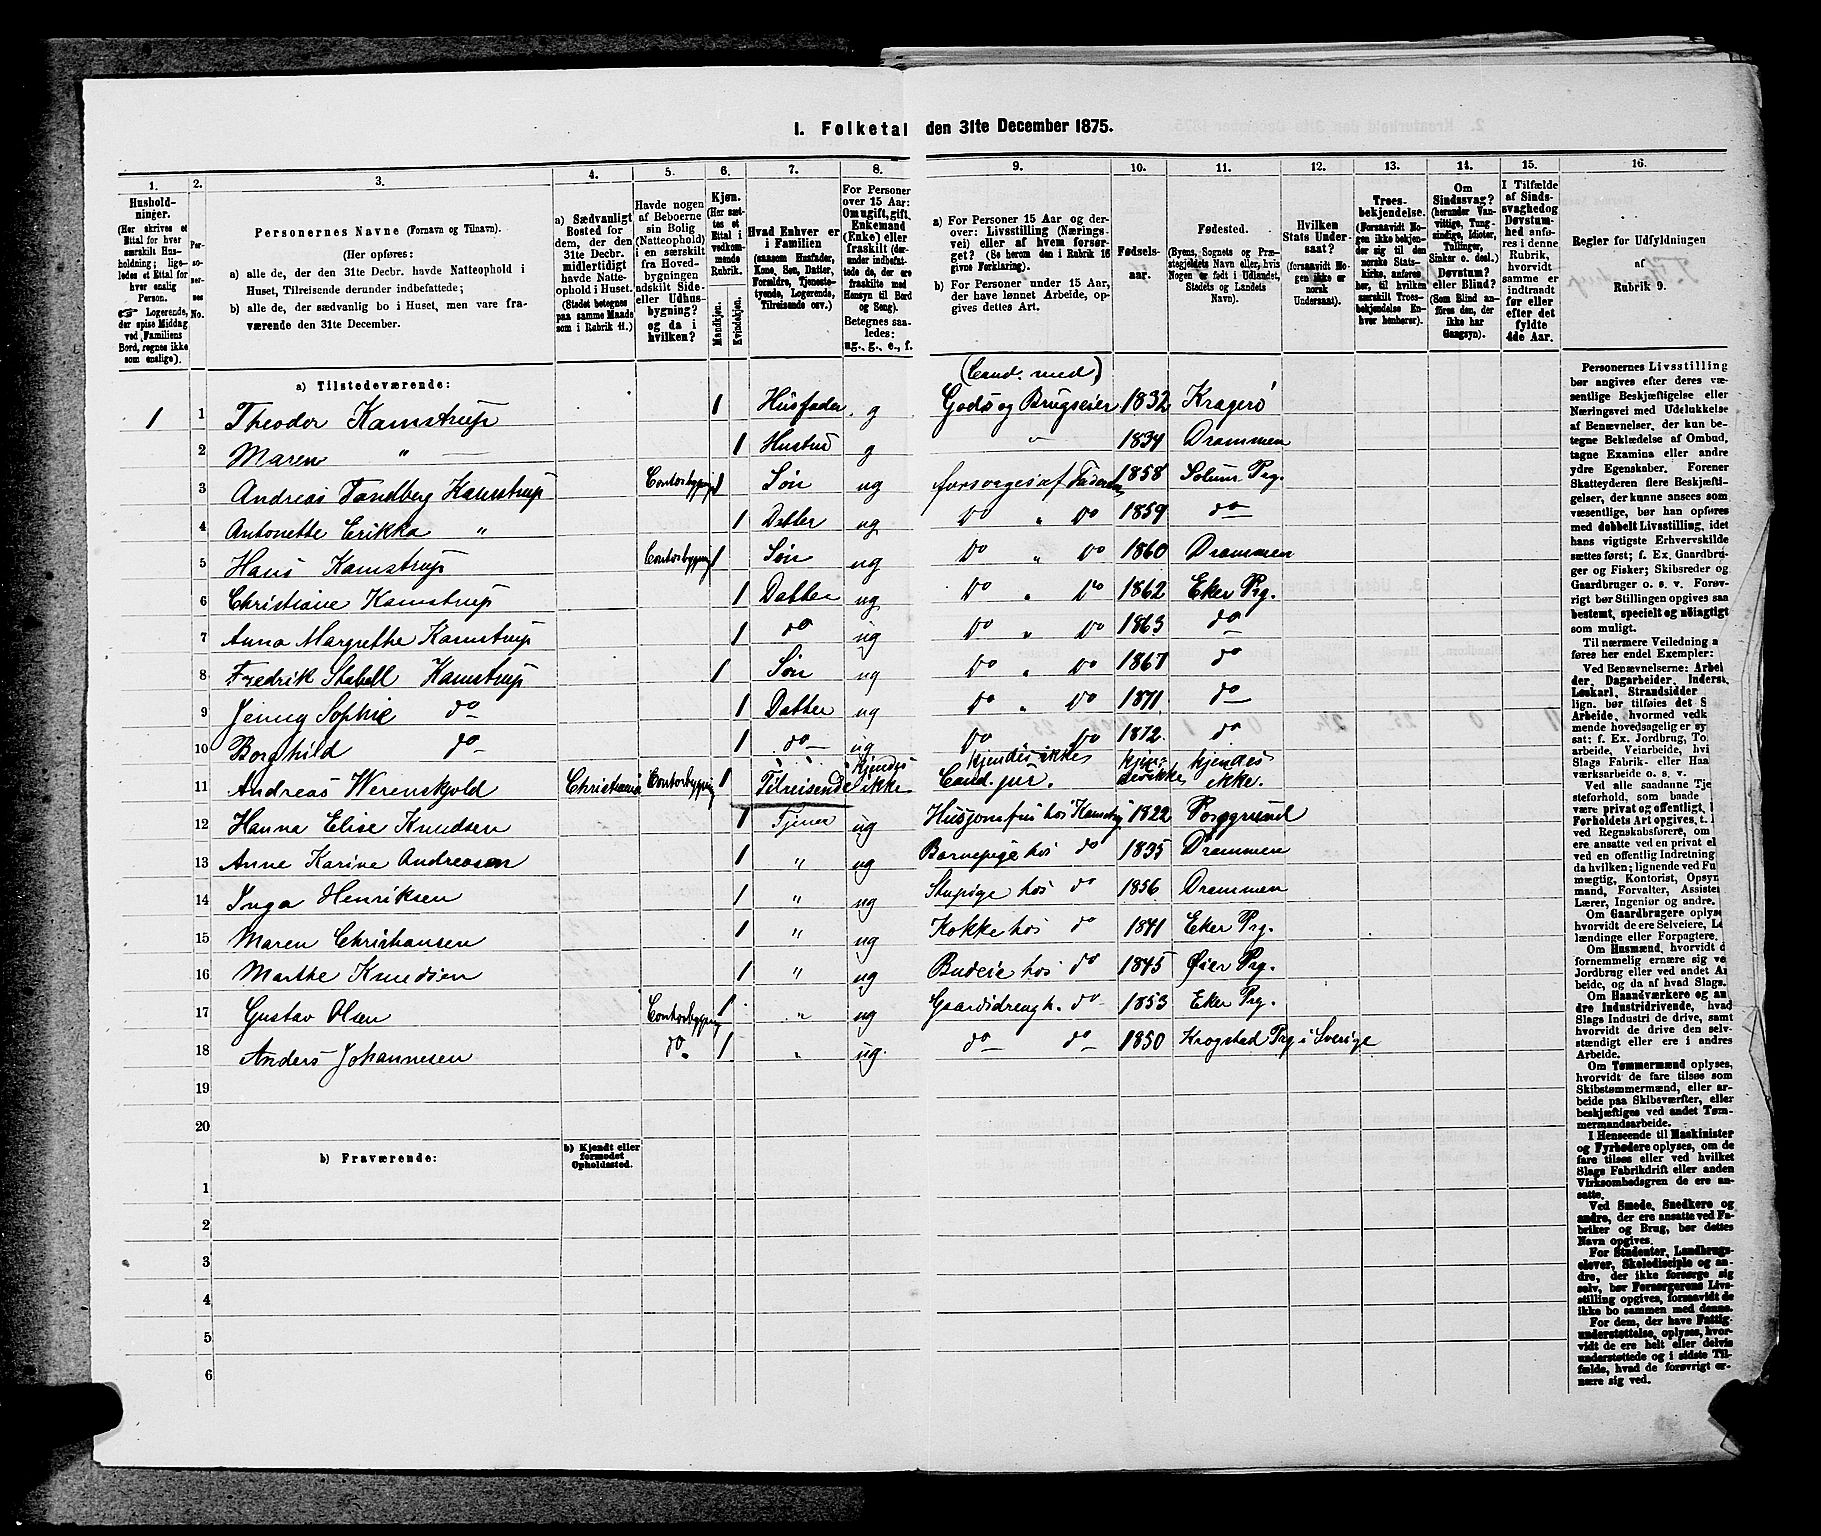 1. Folketal den 31te December 1875.
1. 2. 3. 4. 5. 6. 7. 8. 9. 10. 11. 12. 13. 14. 15. 16.
Hushold-
ninger.
(Her skrives et
Ettal for hver
særskilt Hus-
holdning; lige-
ledes et Ettal for
hver enslig
Person.
Logerende,
der spise Middag
ved Familiens
Bord, regnes ikke
som enslige).
Per-
so-
ner-
nes
No.
Personernes Navne (Fornavn og Tilnavn).
(Her opføres:
a) alle de, der den 31te Decbr. havde Natteophold i
Huset, Tilreisende derunder indbefattede;
b) alle de, der sædvanlig bo i Huset, men vare fra-
værende den 31te December.
a) Sædvanligt
Bosted for
dem, der den
31te Decbr.
midlertidigt
havde Natte-
ophold i Huset.
(Stedet betegnes
paa samme Maade
som i Rubrik 11.)
Havde nogen
af Beboerne
sin Bolig
(Natteophold)
i en særskilt
fra Hoved-
bygningen
adskilt Side-
eller Udhus-
bygning?
og da i
hvilken?
Kjøn.
(Her sæt-
tes et
Ettal i
vedkom-
mende
Rubrik.
Mandkjøn.
Kvindekjøn.
Hvad Enhver er
i Familien
(saasom Husfader,
Kone, Søn, Datter,
Forældre, Tjeneste-
tyende, Logerende,
Tilreisende osv.)
For Personer
over 15 Aar:
Om ugift, gift,
Enkemand
(Enke) eller
fraskilt (der-
under indbefat-
tede de, der ere
fraskilte med
Hensyn til Bord
og Seng).
Betegnes saa-
ledes:
ug., g., e., f.
a) For Personer 15 Aar og der-
over: Livsstilling (Nærings-
vei) eller af hvem forsør-
get? (Se herom den i Rubrik 16
givne Forklaring).
b) For Personer under 15 Aar,
der have lønnet Arbeide, op-
gives dettes Art.
Fødsels-
aar.
Fødested.
(Byens, Sognets og Præ-
stegjeldets Navn eller, hvis
Nogen er født i Udlandet,
Stedets og Landets
Navn).
Hvilken
Stats Under-
saat?
(forsaavidt No-
gen ikke er
norsk
Undersaat).
Troes-
bekjendelse.
(Forsaavidt No-
gen ikke bekjen-
der sig til den
norske Stats-
kirke, anføres
her, til hvilken
særskilt Troes-
bekjendelse En-
hver henhører).
Om
Sindssvag?
(herunder Van-
vittige, Tung-
sindige, Idioter,
Tullinger,
Sinker o. desl.)
Døvstum?
eller Blind?
(Som Blind an-
føres den, der
ikke har
Gangsyn).
I Tilfælde
af Sinds-
svaghed og
Døvstum-
hed anfø-
res i denne
Rubrik,
hvorvidt
samme er
indtraadt
før eller
efter det
fyldte
4de Aar.
Regler for Udfyldningen
af
Rubrik 9.
a) Tilstedeværende:
(Cand. med)
1 1 Theodor Kamstrup 1 Husfader g Gods og Brugseier 1832 Kragerø
2 Maren " 1 Hustru g " 1834 Drammen
3 Andreas Tandberg Kamstrup Contorbygning 1 Søn ug forsørges af Faderen 1858 Solum Prg.
4 Antonette Erikka " 1 Datter ug do " do 1859 do
5 Hans Kamstrup Contorbygning 1 Søn ug do " do 1860 Drammen
6 Christiane Kamstrup 1 Datter ug do " do 1862 Eker Prg.
7 Anna Margrethe Kamstrup 1 do ug do " do 1863 do
8 Fredrik Stabell Kamstrup 1 Søn ug do " do 1867 do
9 Jenny Sophie do 1 Datter ug do " do 1871 do
10 Borghild do 1 do ug do do 1872. do
kjendes kjendes ikke kjen- kjendes
11 Andreas Werenskjold Christiania Contorbygning 1 Tilreisende ikke Cand. jur. des ikke ikke.
12 Hanna Elise Knudsen 1 Tjener ug Husjomfru hos Kamstrup 1822 Porsgrund
13 Anne Karine Andreasen 1 " ug Barnepige hos do 1835 Drammen
14 Inga Henriksen 1 " ug Stupige hos do 1856 Drammen
15 Maren Christiansen 1 " ug Kokke hos do 1841 Eker Prg.
16 Marthe Knudsen 1 " ug Budeie hos do 1845 Øier Prg.
17 Gustav Olsen Contorbygning 1 " ug Gaardsdreng h. do 1853 Eker Prg.
18 Anders Johannesen do. 1 " ug. do do 1850 Krogstad Prg i Sverige
19
20
b) Fraværende: b) Kjendt eller
formodet
Opholdssted.
1
2
3
4
5
6
Personernes Livsstilling
bør angives efter deres væ-
sentlige Beskjæftigelse eller
Næringsvei med Udelukkelse
af Benævnelser, der kun be-
tegne Beklædelse af Ombud,
tagne Examina eller andre
ydre Egenskaber. Forener
Skatteyderen flere Beskjæfti-
gelser, der kunne ansees som
væsentlige, bør han opføres
med dobbelt Livsstilling, idet
hans vigtigste Erhvervskilde
sættes først; f. Ex. Gaardbru-
ger og Fisker; Skibsreder og
Gaardbruger o. s. v. Forøv-
rigt bør Stillingen opgives saa
bestemt, specielt og nöiagtigt
som muligt.
Til nærmere Veiledning a
føres her endel Exempler:
Ved Benævnelserne: Arbei
der, Dagarbeider, Inderst,
Løskarl, Strandsidder
lign. bør tilføies det S
Arbeide, hvormed vedk
mende hovedsagelig er sy
sat; f. Ex. Jordbrug, To
arbeide, Veiarbeide, hvi
Slags Fabrik- eller Haa
værksarbeide o. s. v.
Ved alle saadanne Tje
steforhold, som baade
være privat og offentligt,
Forholdets Art opgives, t.
ved Regnskabsførere, om
ere ansatte ved en privat el
ved en offentlig Indretning
da hvilken; lignende ved Fu
mægtig, Kontorist, Opsyn
mand, Forvalter, Assister
Lærer, Ingeniør og andre.
Om Gaardbrugere oplyse
hvorvidt de ere Selveiere, Le
lændinge eller Forpagtere.
Om Husmænd, hvorvidt d
fornemmelig ernære sig ve
Jordbrug eller ved andet Ar
beide, og da af hvad Slags.
Om Haandværkere og an
dre Industridrivende, hvad
Slags Industri de drive, samt
hvorvidt de drive den selv-
stændigt eller ere i andres
Arbeide.
Om Tømmermænd oplyses,
hvorvidt de fare tilsøs som
Skibstømmermænd, eller ar-
beide paa Skibsværfter, eller
beskjæftiges ved andet Tøm-
mermandsarbeide.
I Henseende til Maskinister
og Fyrbødere oplyses, om de
fare tilsøs eller ved hvilket
Slags Fabrikdrift eller anden
Virksomhedsgren de ere an-
satte.
Ved Smede, Snedkere og
andre, der ere ansatte ved Fa-
briker og Brug, bør dettes
Navn opgives.
For Studenter, Landbrugs-
elever, Skoledisciple og an-
dre, der ikke forsørge sig
selv, bør Forsørgerens Livs-
stilling opgives, forsaavidt de
ikke bo sammen med denne.
For dem, der have Fattig-
understøttelse, oplyses, hvor-
vidt de ere helt eller delvis
understøttede og i sidste Til-
fælde, hvad de forøvrigt er-
nære sig ved.